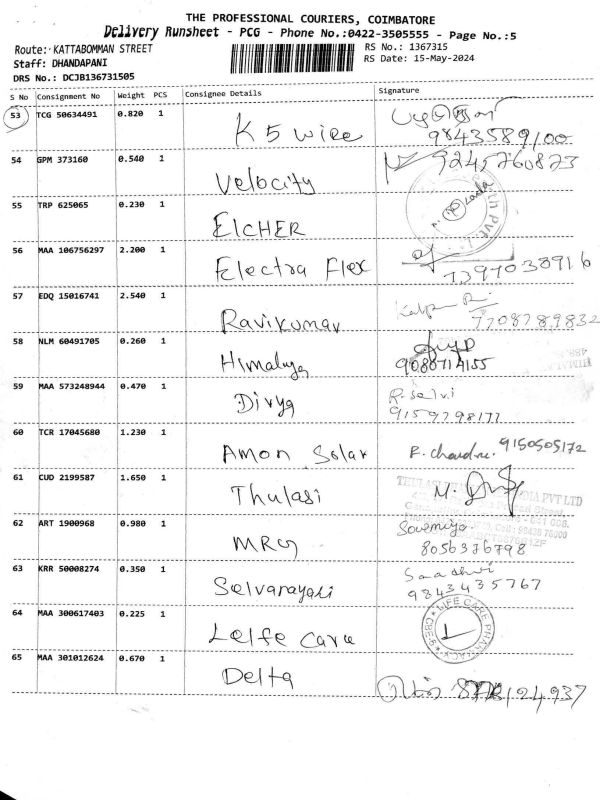 THE PROFESSIONAL COURIERS, COIMBATORE
Delivery Runsheet - PCG - Phone No.:0422-3505555 - Page No.:5
Route: KATTABOMMAN STREET
RS No.: 1367315
Staff: DHANDAPANI
RS Date: 15-May-2024
DRS No.: DCJB136731505
S No Consignment No Weight PCS Consignee Details Signature
53 TCG 50634491 0.820 1 K 5 Wire
9843589100
54 GPM 373160 0.540 1 Velocity 9245760873
55 TRP 625065 0.230 1 EICHER
56 MAA 106756297 2.200 1 Electra Flex 7397038916
57 EDQ 15016741 2.540 1 Ravikumar 7708789832
58 NLM 60491705 0.260 1 Himalaya
59 MAA 573248944 0.470 1 Divya R. Selvi
9159798177
60 TCR 17045680 1.230 1 Amon Solar 9150505172
61 CUD 2199587 1.650 1 Thulasi
62 ART 1900968 0.980 1 MRG Sowmiya
8056376798
63 KRR 50008274 0.350 1 Selvanayaki
9843435767
64 MAA 300617403 0.225 1 Leife Care LIFE CARE
65 MAA 301012624 0.670 1 Delta